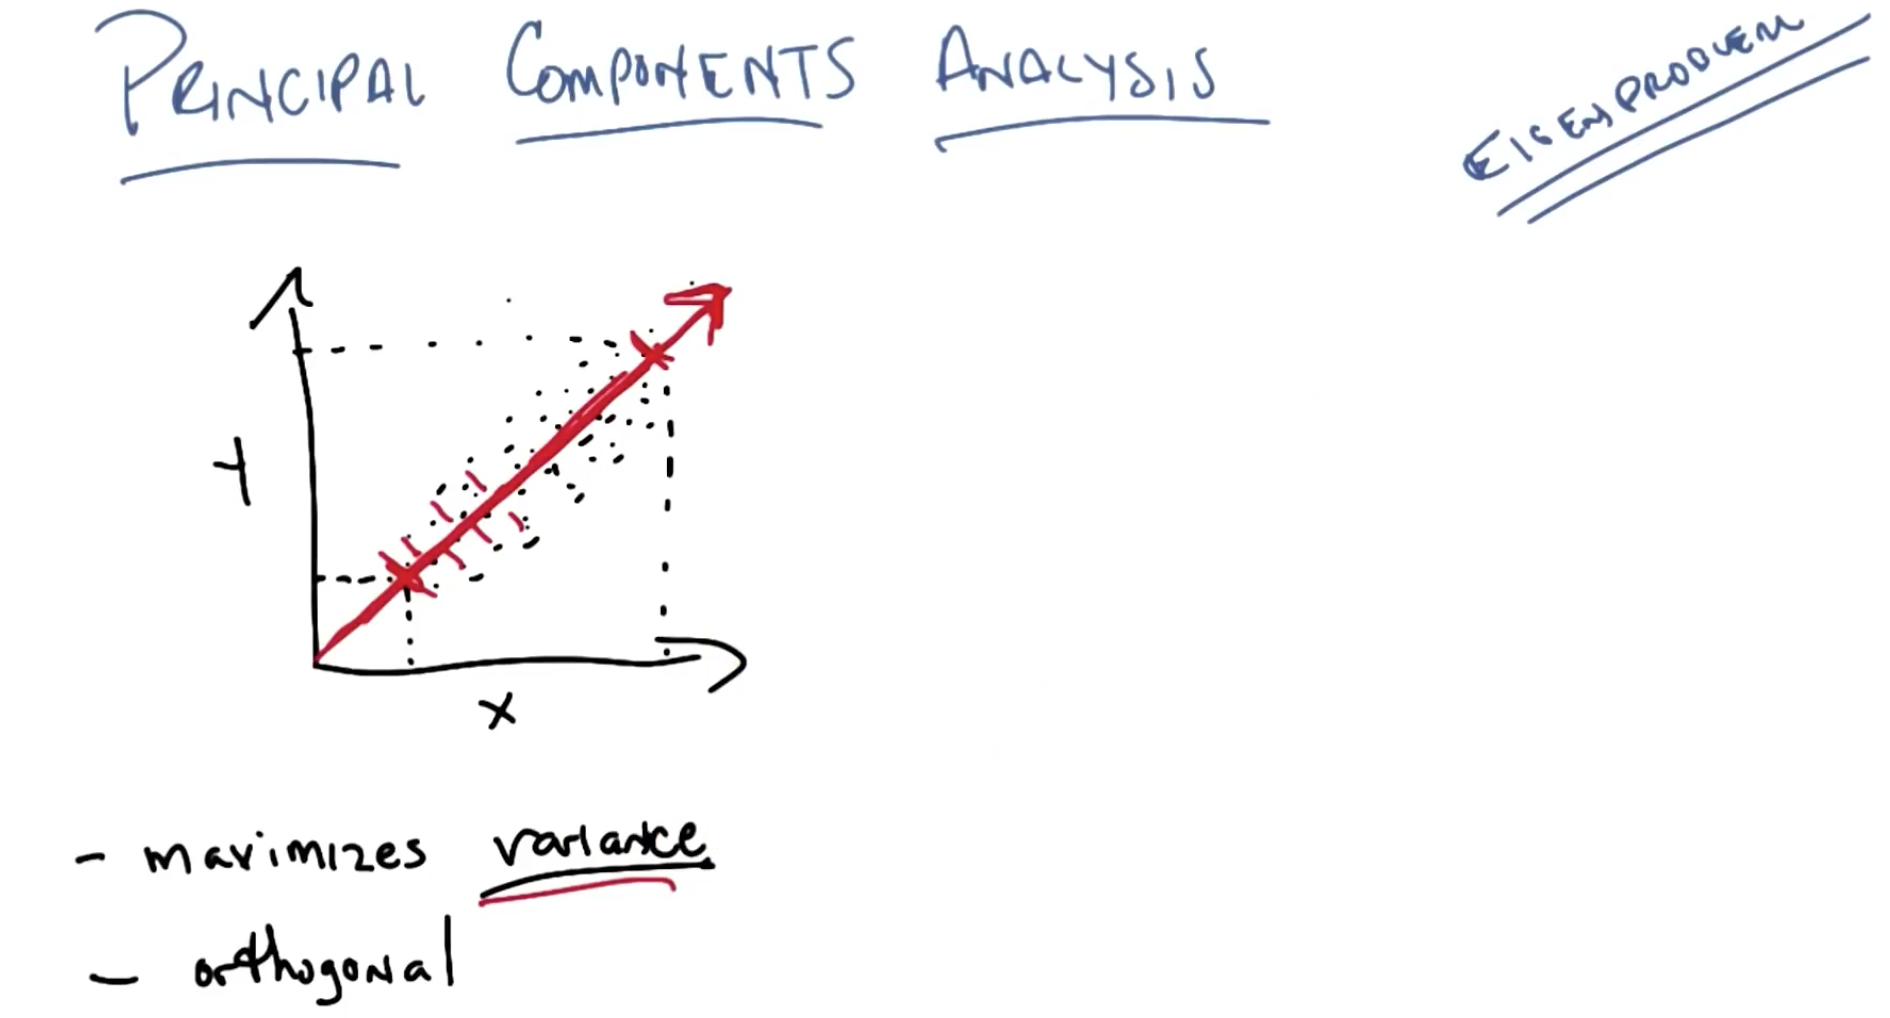 PRINCIPAL COMPONENTS ANALYSIS
EIGENPROBLEM
Y
X
- maximizes variance
- orthogonal